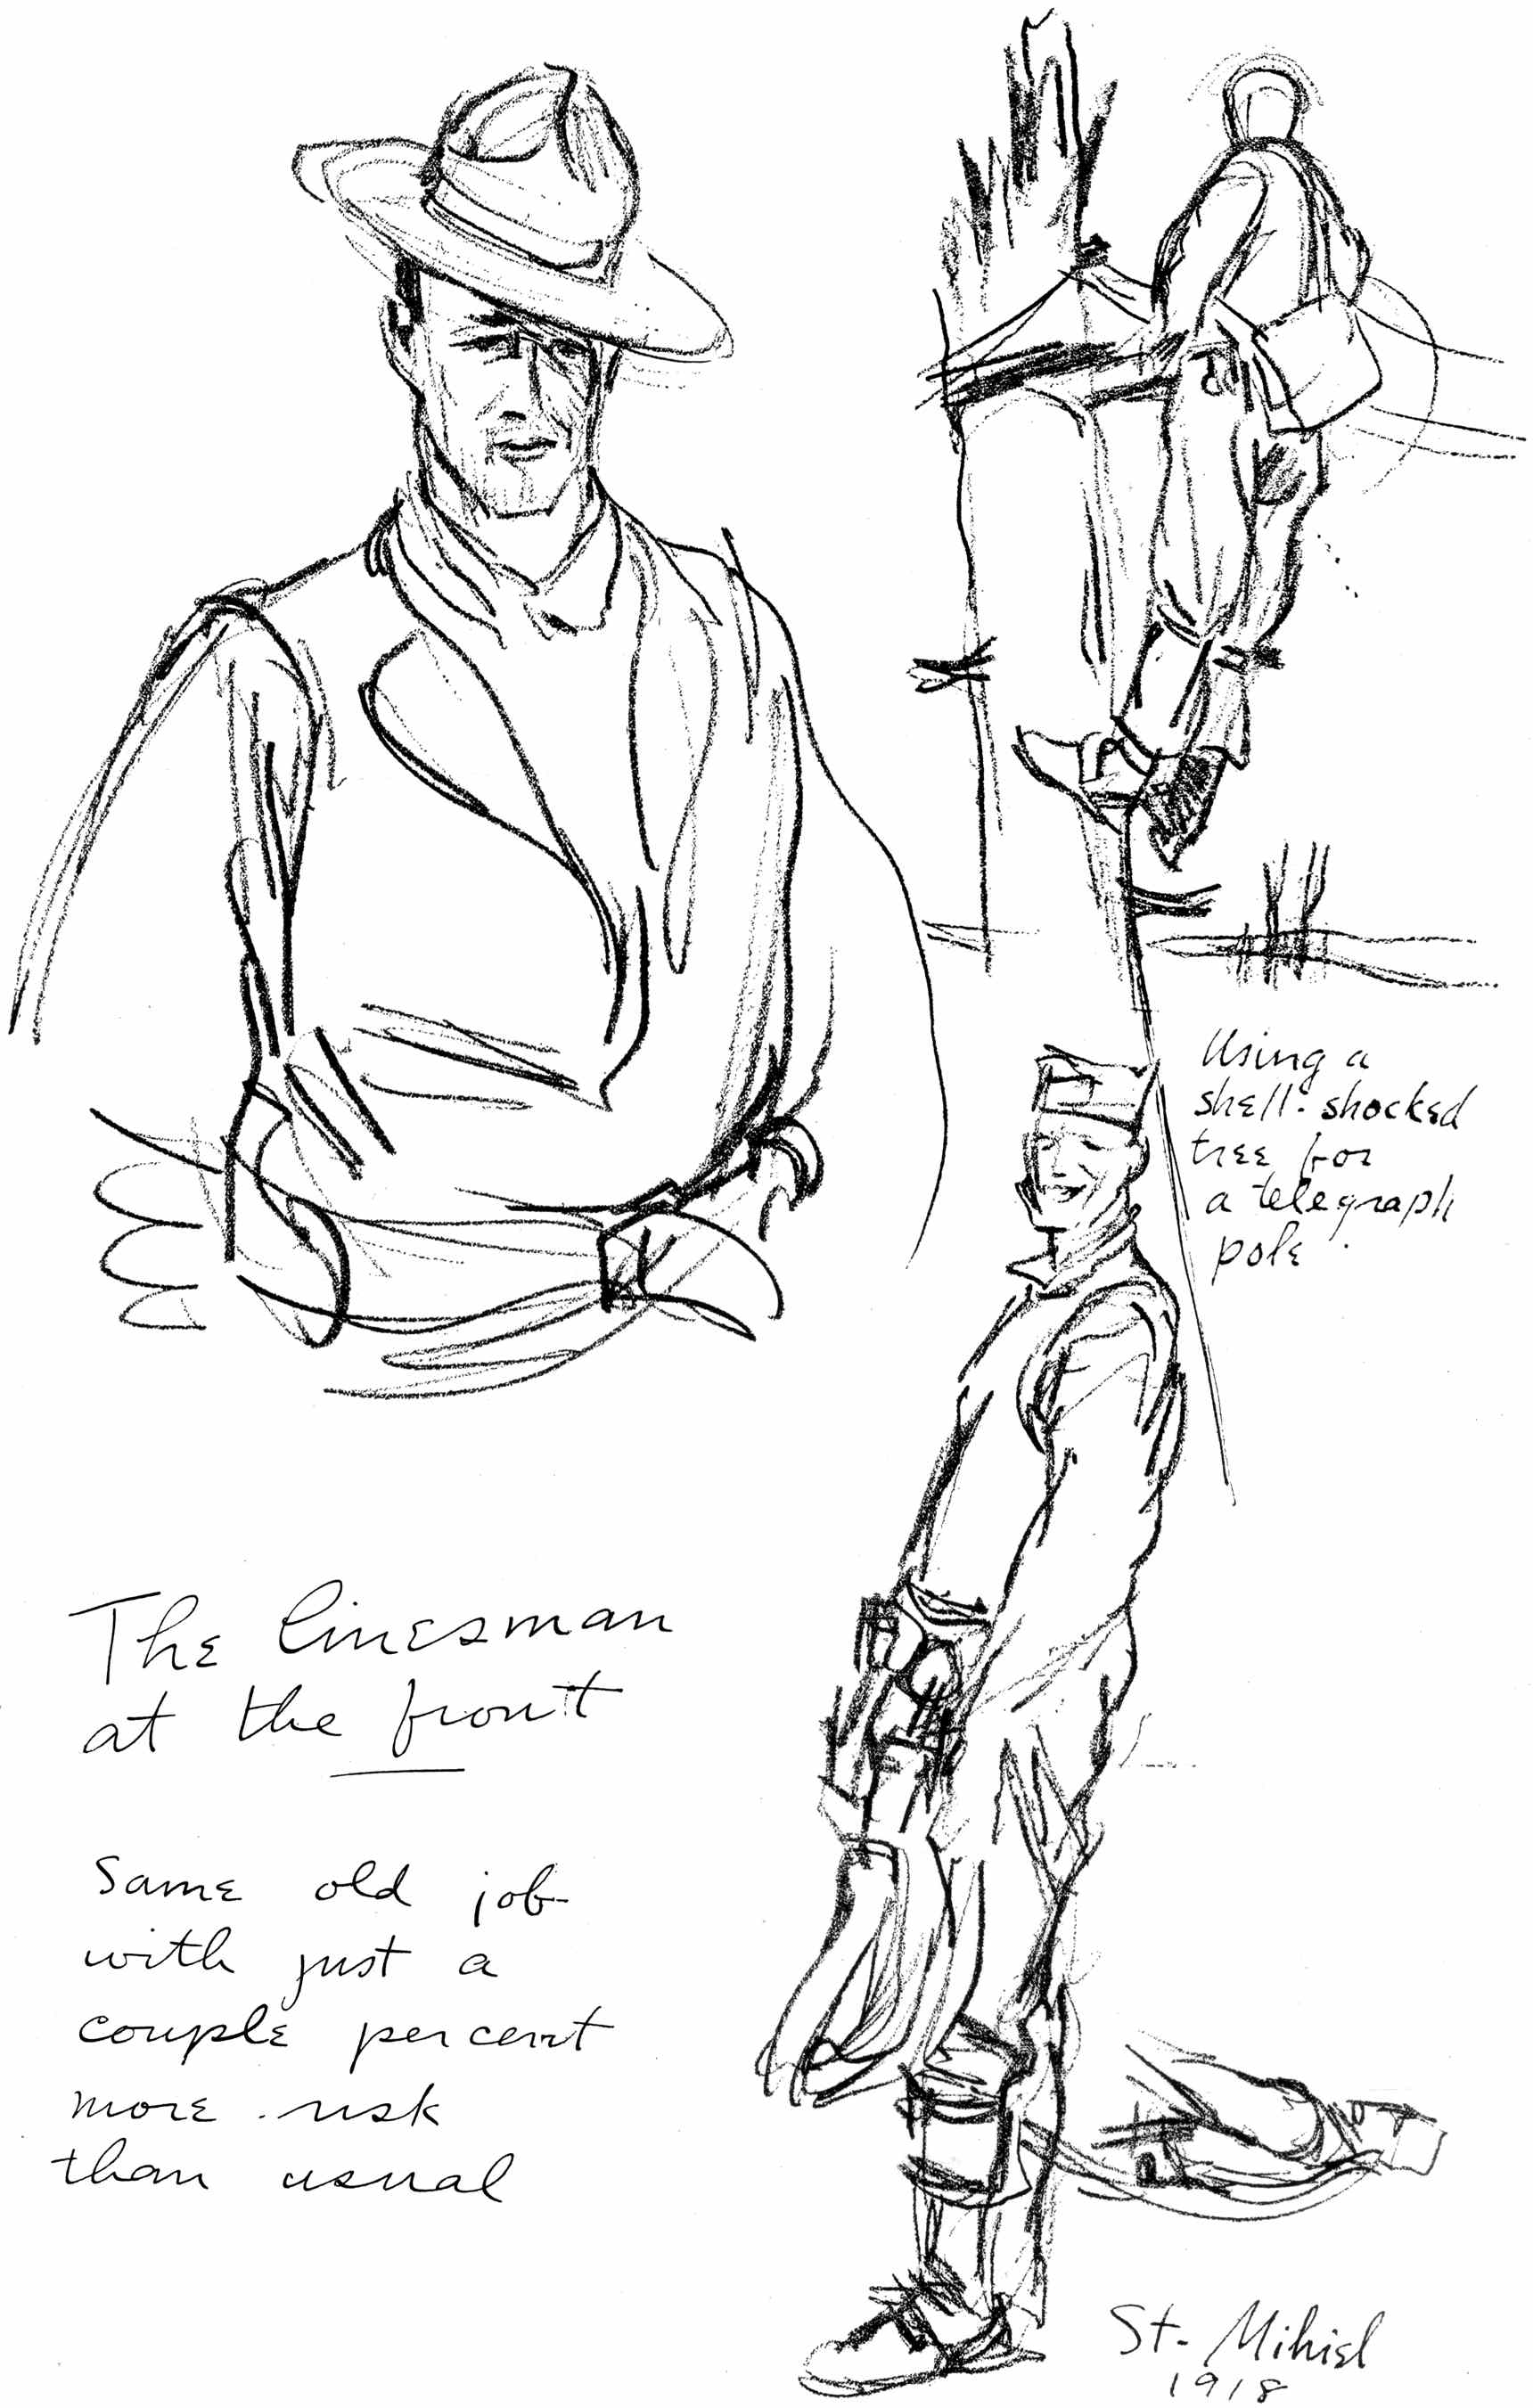 Using a
shell-shocked
tree for
a telegraph
pole.
The linesman
at the front
Same old job
with just a
couple percent
more risk
than usual
St. Mihiel
1918